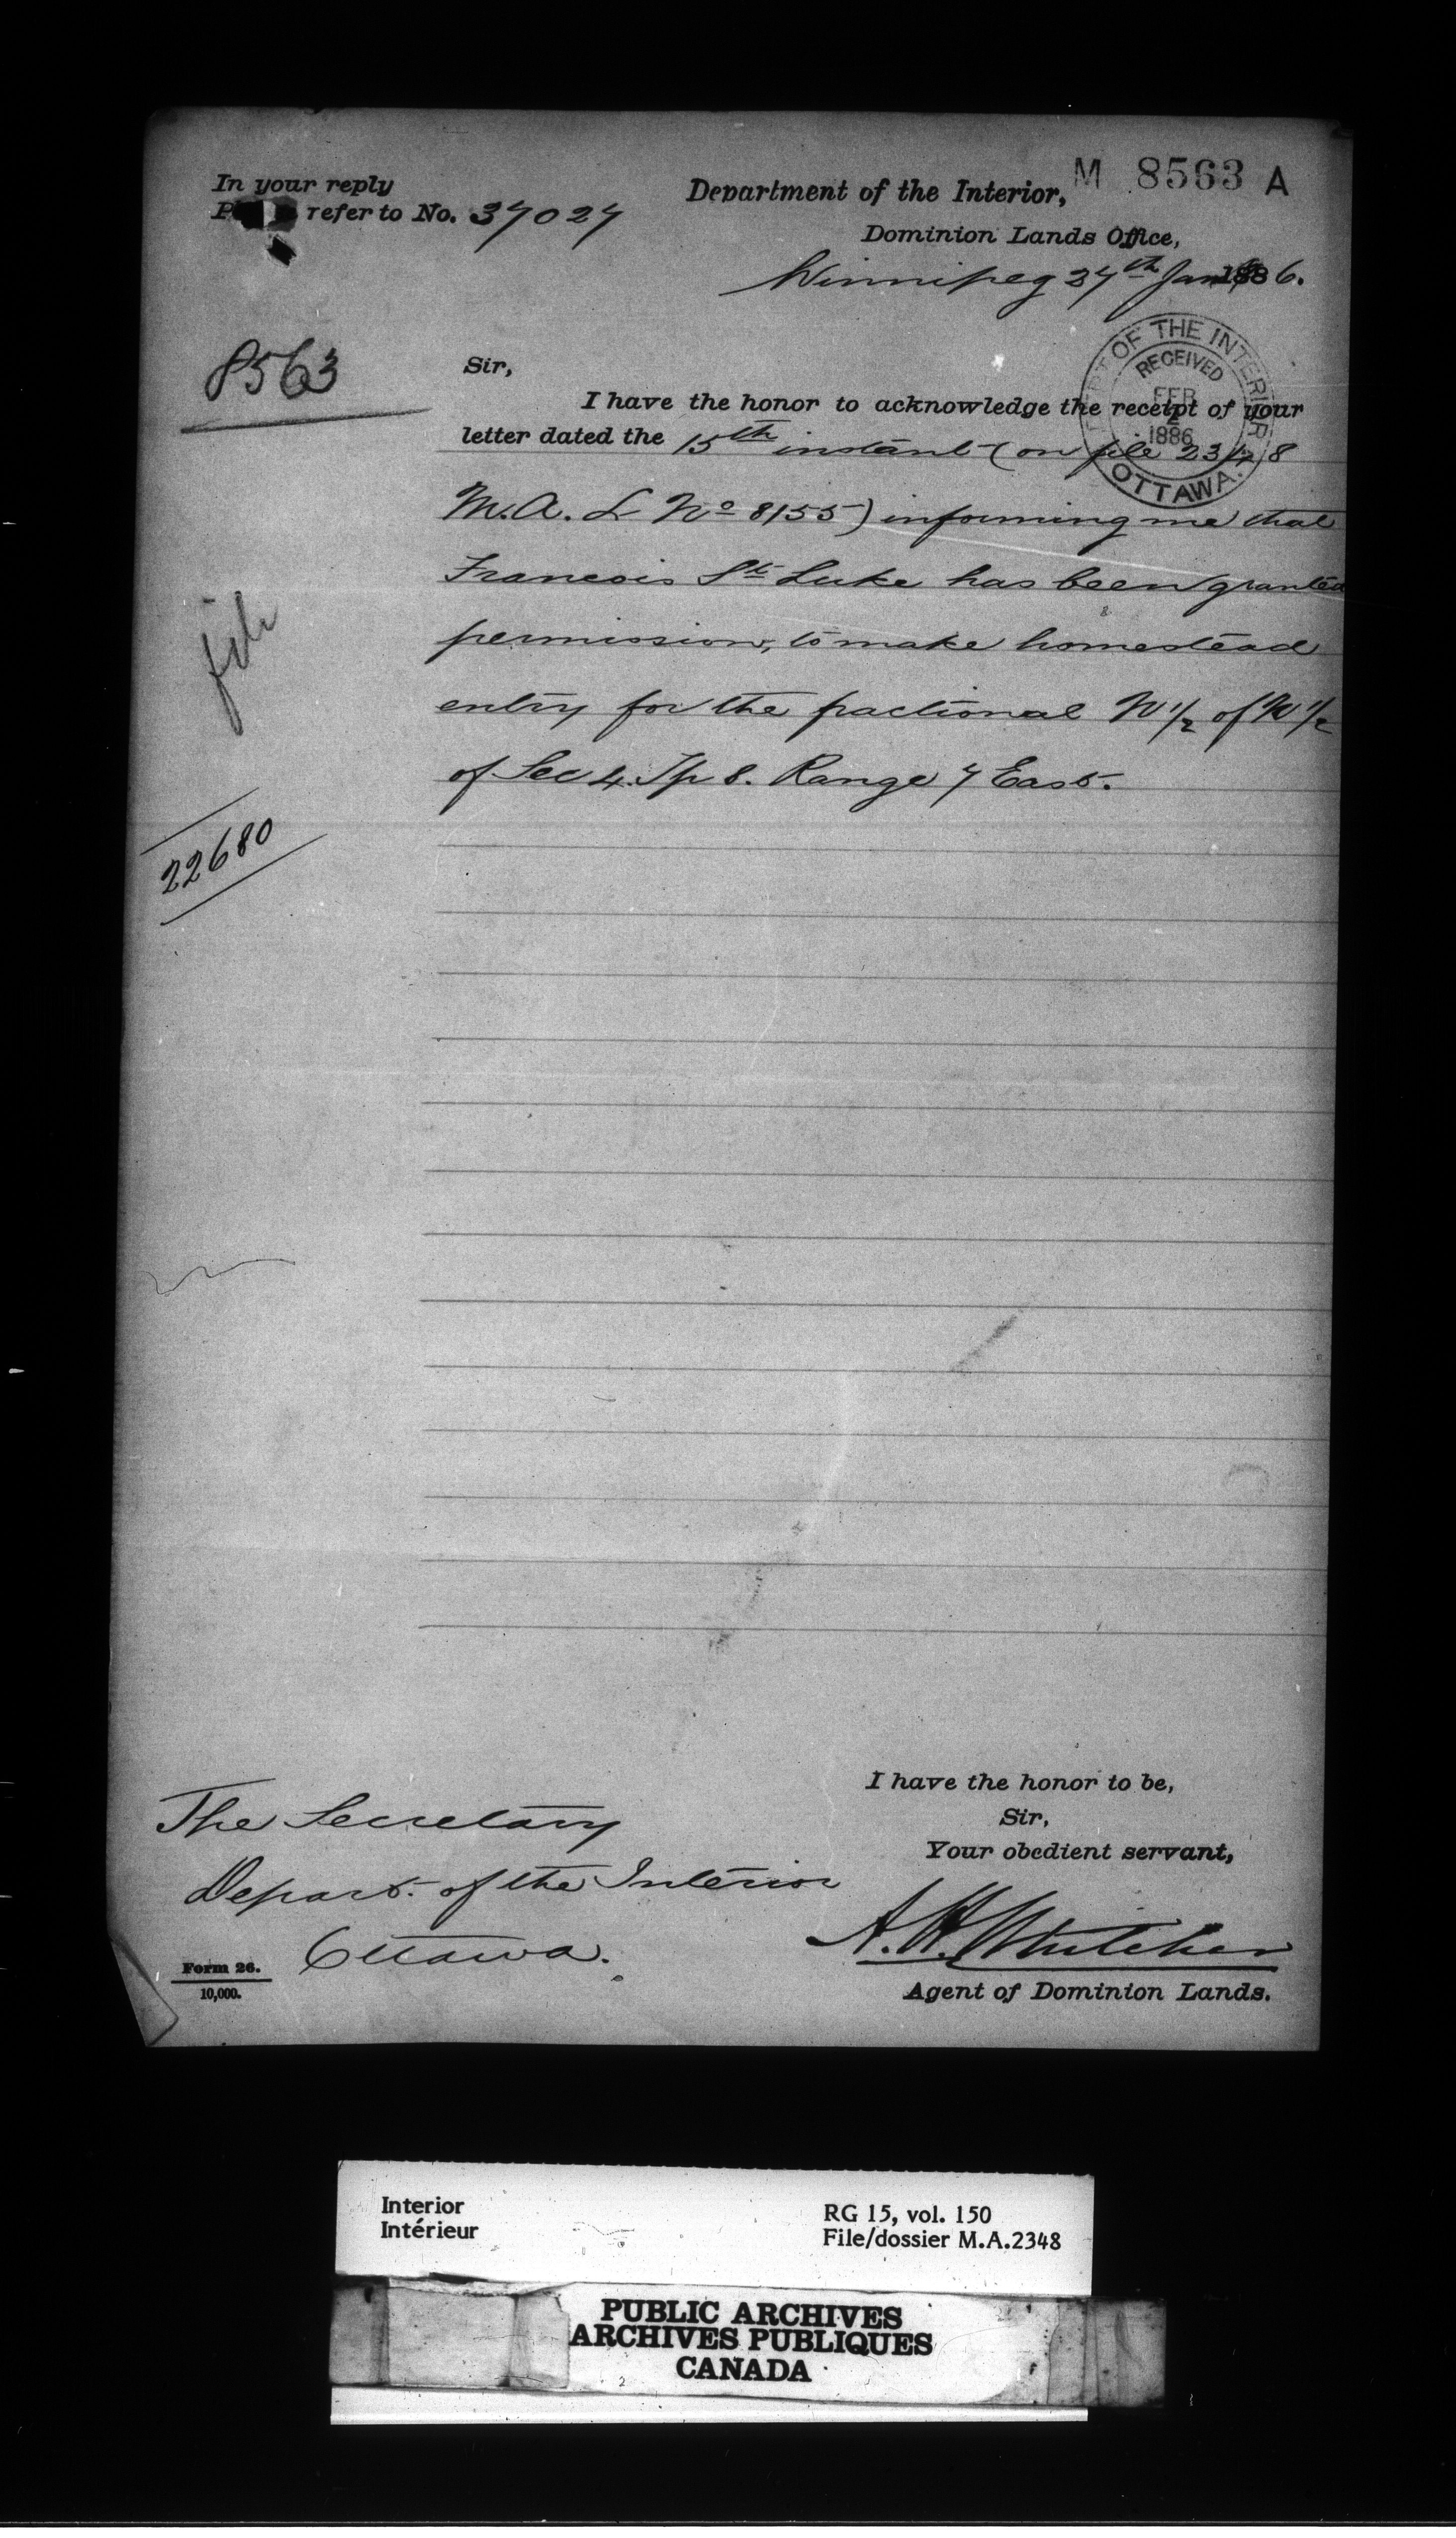 In your reply
refer to No. 37027
M 8563 A
Department of the Interior,
Dominion Lands Office,
Winnipeg 27th Jany 1886.
DEPT OF THE INTERIOR
RECEIVED
FEB
2
1886
OTTAWA.
8563
Sir,
I have the honor to acknowledge the receipt of your
letter dated the 15th instant (on file 2348
M.A. L No 8155) informing me that
Francois St Luke has been granted
permission, to make homestead
entry for the fractional N 1/2 of 1/2
of Sec 4. Tp 8. Range 7 East.
file
22680
I have the honor to be,
Sir,
Your obedient servant,
The Secretary
Depart. of the Interior
Ottawa.
Agent of Dominion Lands.
Form 26.
10,000.
Interior
Intérieur
RG 15, vol. 150
File/dossier M.A.2348
PUBLIC ARCHIVES
ARCHIVES PUBLIQUES
CANADA